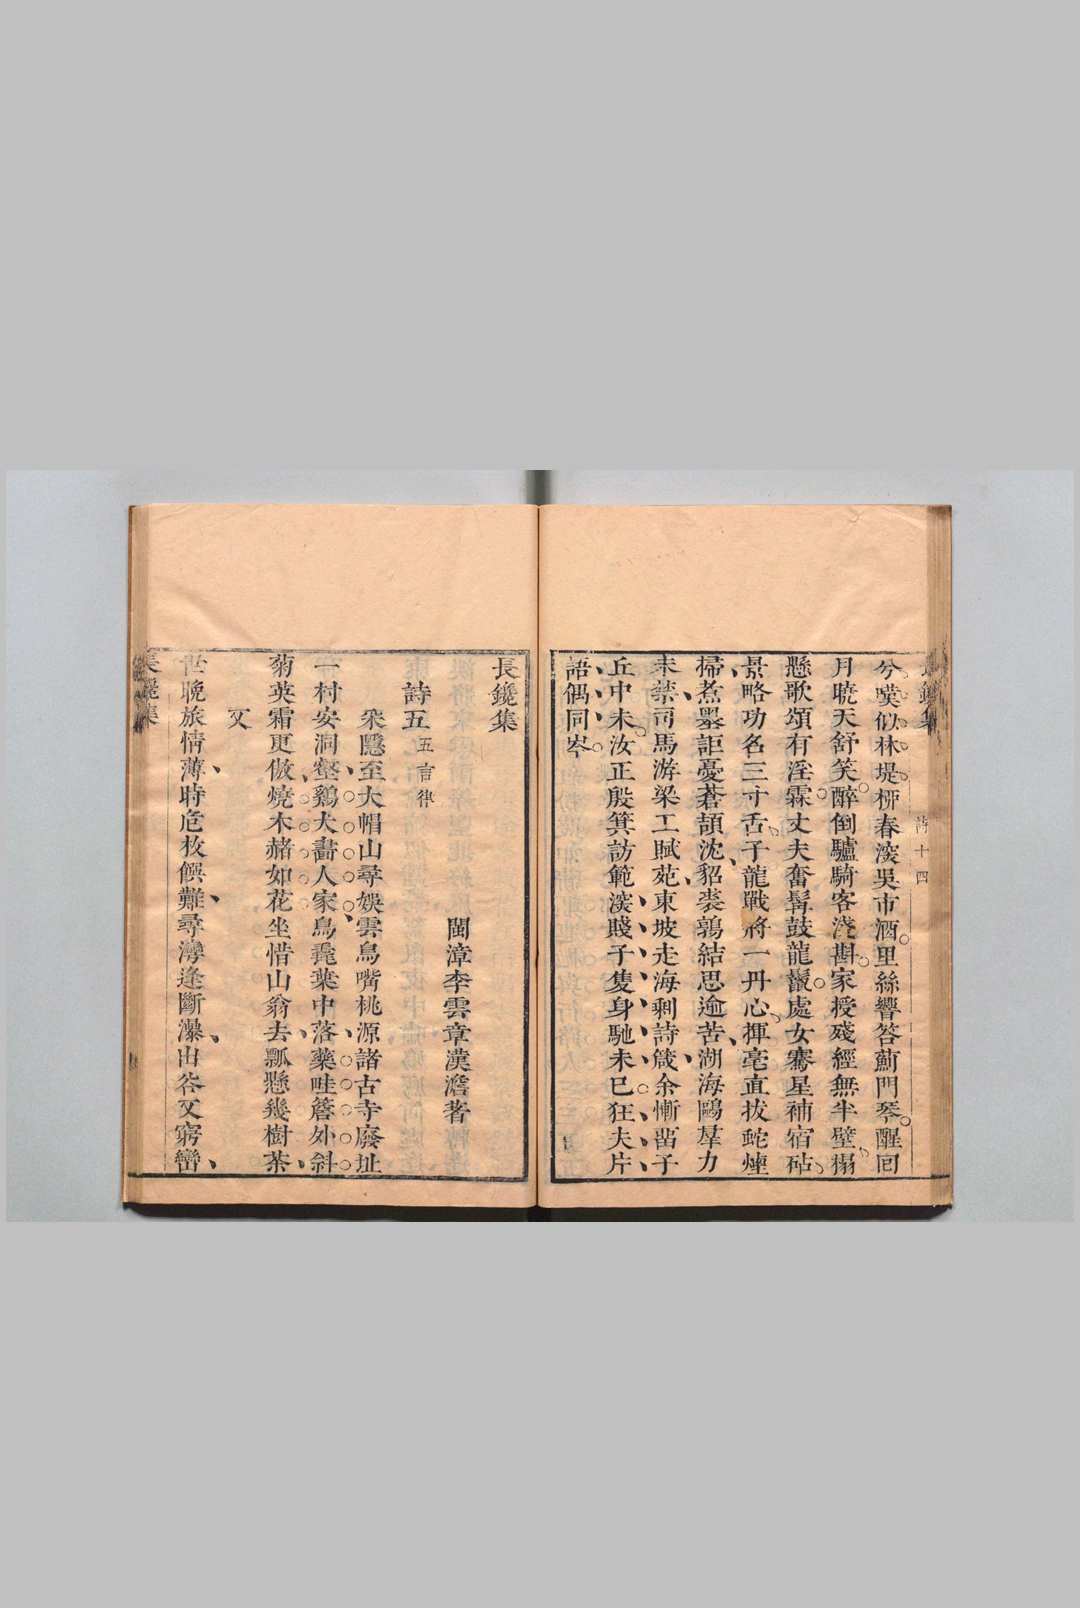 兮嘆似林堤栁春深吳市酒里絲響答薊門琴醒囘
月曉天舒笑醉倒驢騎客淺斟家授殘經無半壁榻
懸歌頌有淫霖丈夫奮髯鼓龍鬣處女騫星補宿砧
景略功名三寸舌子龍戰將一丹心揮毫直拔蛇煙
掃煮墨詎憂蒼頡沈貂裘鶉結思逾苦湖海鷗羣力
未禁司馬游梁工賦苑東坡走海剩詩箴余慚菑子
丘中未汝正殷箕訪範深賤子隻身馳未已狂夫片
語偶同岑
詩十四
長鑱集
詩五 五言律
閩漳李雲章漢澹著
采隱至大帽山尋娛雲鳥嘴桃源諸古寺廢址
一村安洞壑鷄犬畵人家鳥毳葉中落藥畦簷外斜
菊英霜更傲燒木赭如花坐惜山翁去瓢懸幾樹茶
又
世晚旅情薄時危枚饌難尋灣逢斷瀑出谷又窮巒
長鑱集